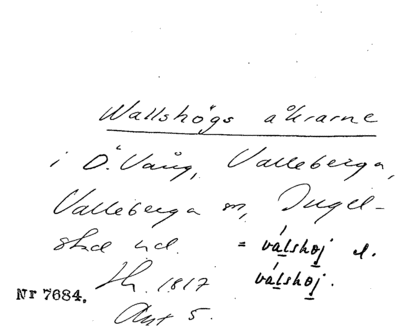 Wallshögs åkrarne
i Ö. Vång, Valleberga,
Valleberga sn, Ingel-
stad hd. = válshøj l.
Sk. 1817 válshøj.
Nr 7684.
Akt 5.